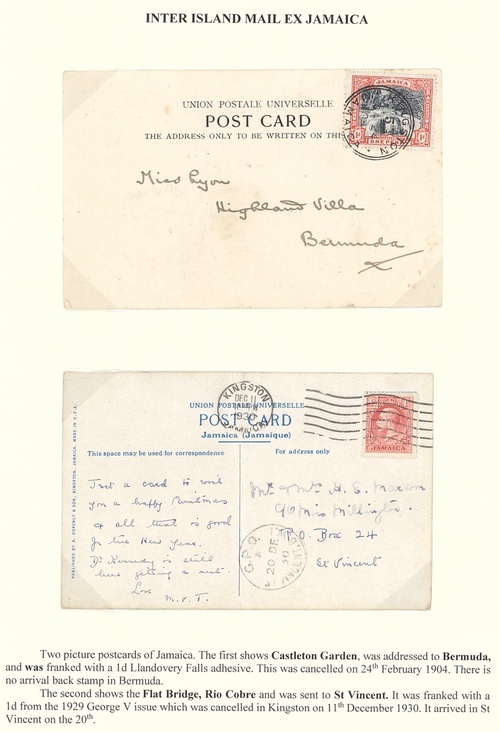 INTER ISLAND MAIL EX JAMAICA
UNION POSTALE UNIVERSELLE
POST CARD
THE ADDRESS ONLY TO BE WRITTEN ON THIS
JAMAICA
Miss Lyon
Highland Villa
Bermuda
KINGSTON
DEC 11
1930
JAMAICA
UNION POSTALE UNIVERSELLE
POST CARD
Jamaica (Jamaique)
JAMAICA
This space may be used for correspondence
For address only
PUBLISHED BY A. DUPERLY & SON, KINGSTON, JAMAICA. MADE IN U.S.A.
Just a card to wish
you a happy Christmas
& all that is good
for the New Year.
Dr Kennedy is still
here getting a rest.
Love
M.V.T.
Mr & Mrs H. E.
c/o Miss Millington.
P.O. Box 24
St Vincent
G.P.O.
20 DE
30
ST VINCENT
Two picture postcards of Jamaica. The first shows Castleton Garden, was addressed to Bermuda,
and was franked with a 1d Llandovery Falls adhesive. This was cancelled on 24th February 1904. There is
no arrival back stamp in Bermuda.
The second shows the Flat Bridge, Rio Cobre and was sent to St Vincent. It was franked with a
1d from the 1929 George V issue which was cancelled in Kingston on 11th December 1930. It arrived in St
Vincent on the 20th.